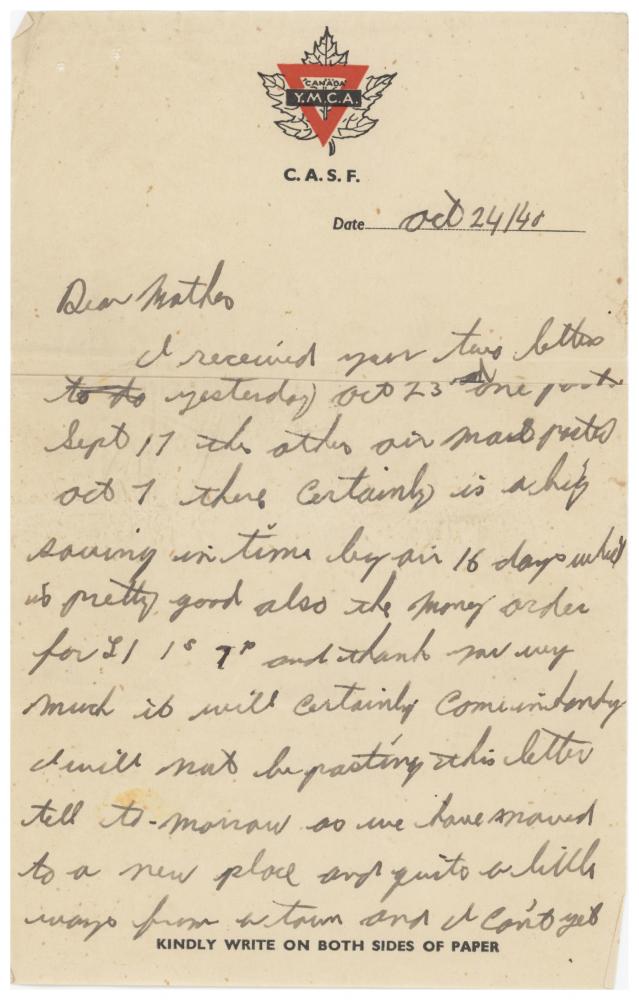 CANADA
Y.M.C.A.
C. A. S. F.
Date Oct 24/40
Dear Mother
I received your two letters
to to yesterday Oct 23 one post
Sept 17 the other air mail posted
Oct 7 there certainly is a big
saving in time by air 16 days which
is pretty good also the money order
for £1 1s 7p and thank you very
much it will certainly come in handy
I will not be posting this letter
tell to-morrow as we have moved
to a new place and quite a little
ways from a town and I can't get
KINDLY WRITE ON BOTH SIDES OF PAPER